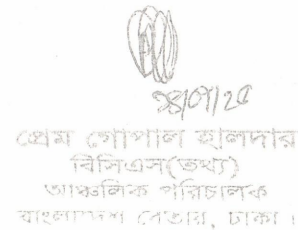 প্রেম গোপাল হালদার
বিসিএস(তথ্য)
আঞ্চলিক পরিচালক
বাংলাদেশ বেতার, ঢাকা।